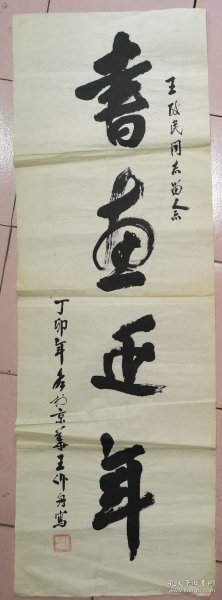 王政民同志留念
書畫延年
丁卯年冬於京華王作舟寫